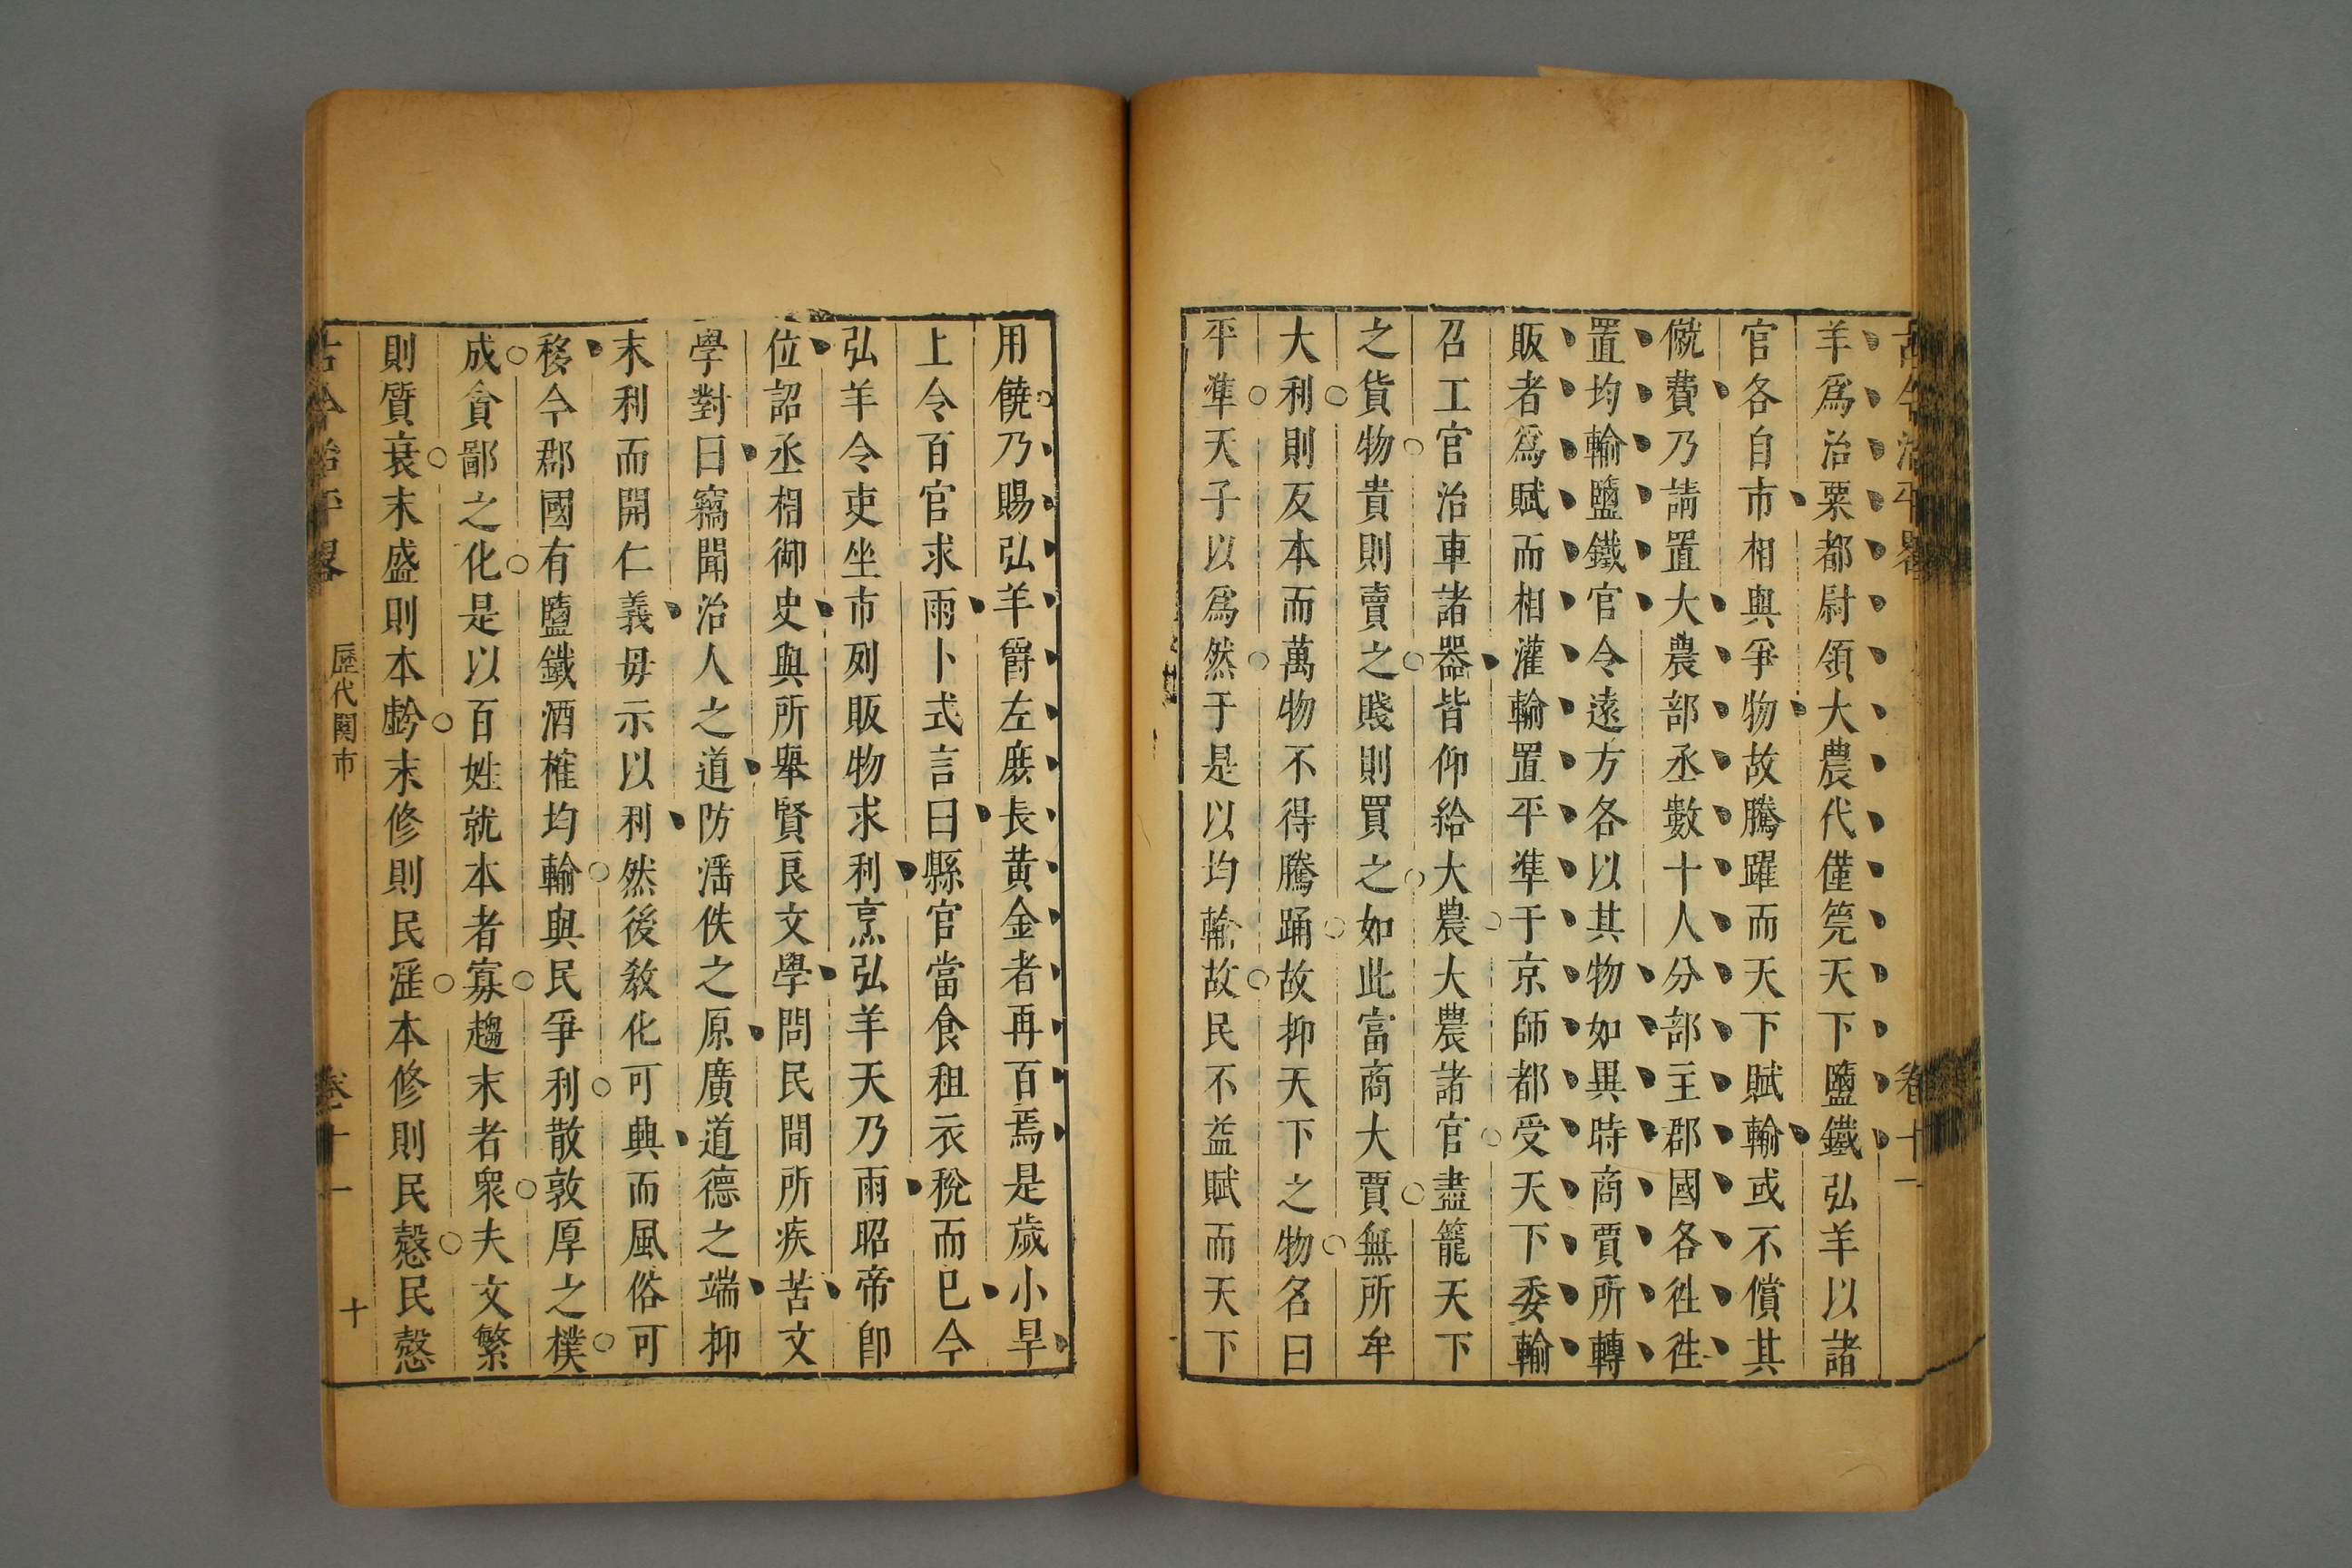 古今治平畧 卷十一
羊爲治粟都尉領大農代僅筦天下鹽鐵弘羊以諸
官各自市相與爭物故騰躍而天下賦輸或不償其
僦費乃請置大農部丞數十人分部主郡國各徃徃
置均輸鹽鐵官令遠方各以其物如異時商賈所轉
販者爲賦而相灌輸置平準于京師都受天下委輸
召工官治車諸器皆仰給大農大農諸官盡籠天下
之貨物貴則賣之賤則買之如此富商大賈無所牟
大利則反本而萬物不得騰踊故抑天下之物名曰
平準天子以爲然于是以均輸故民不益賦而天下
用饒乃賜弘羊爵左庶長黄金者再百焉是歲小旱
上令百官求雨卜式言曰縣官當食租衣稅而巳今
弘羊令吏坐市列販物求利烹弘羊天乃雨昭帝卽
位詔丞相御史與所舉賢良文學問民間所疾苦文
學對曰竊聞治人之道防滛佚之原廣道德之端抑
末利而開仁義毋示以利然後敎化可興而風俗可
移今郡國有鹽鐵酒榷均輸與民爭利散敦厚之樸
成貪鄙之化是以百姓就本者寡趨末者衆夫文繁
則質衰末盛則本虧末修則民滛本修則民慤民慤
古今治平畧 歷代關市 卷十一 十